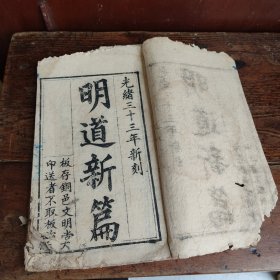 光緒三十三年新刻
明道新篇
板存銅邑文明堂
印送者不取板